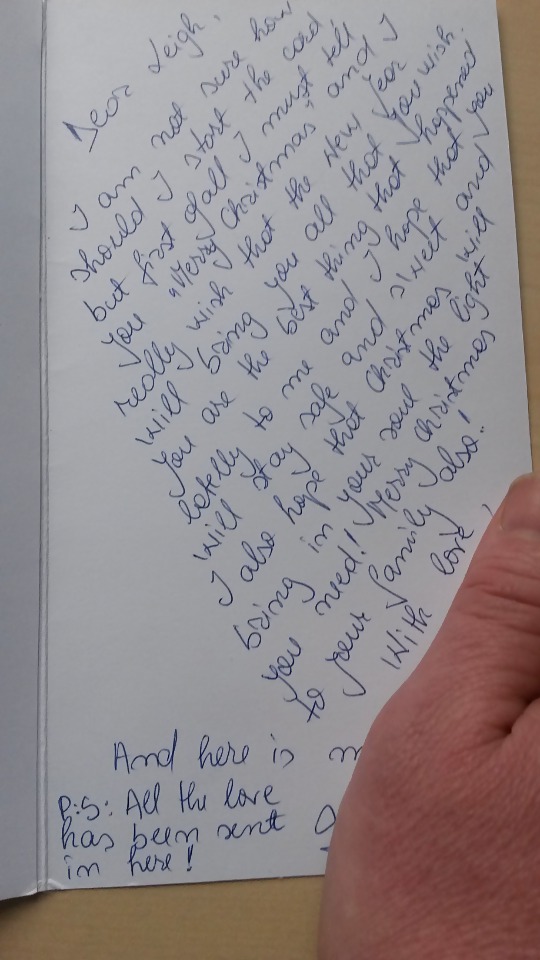 Dear Leigh,
I am not sure how
should I start the card
but first of all I must tell
you "Merry Christmas" and I
really wish that the New Year
will bring you all that you wish.
You are the best thing that happened
latelly to me and I hope that you
will stay safe and sweet and
I also hope that Christmas will
bring in your soul the light
you need! Merry Christmas
to your family also!
With love,
And here is
P.S: All the love
has been sent
in here!